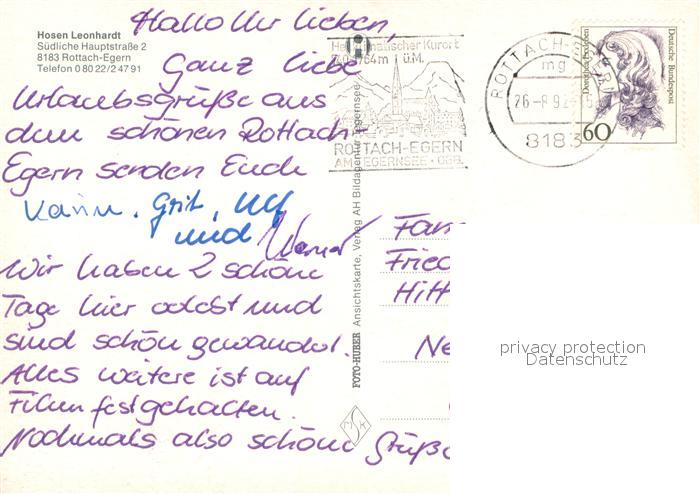 Hallo Ihr lieben,
Ganz liebe
Urlaubsgrüße aus
dem schönen Rottach-
Egern senden Euch
Karin, Grit, Ulf
und Werner
Wir haben 2 schöne
Tage hier erlebt und
sind schön gewandert.
Alles weitere ist auf
Film festgehalten.
Nochmals also schöne Grüße
Hosen Leonhardt
Südliche Hauptstraße 2
8183 Rottach-Egern
Telefon 0 80 22/2 47 91
Heilklimatischer Kurort
740-1764m ü.M.
ROTTACH-EGERN
AM TEGERNSEE · OBB.
ROTTACH-EGERN
mg
26.-8.92
8183
Deutsche Bundespost
60
FOTO-HUBER Ansichtskarte, Verlag AH Bildagentur Tegernsee
Fam
Fried
Hitt
Ne
privacy protection
Datenschutz